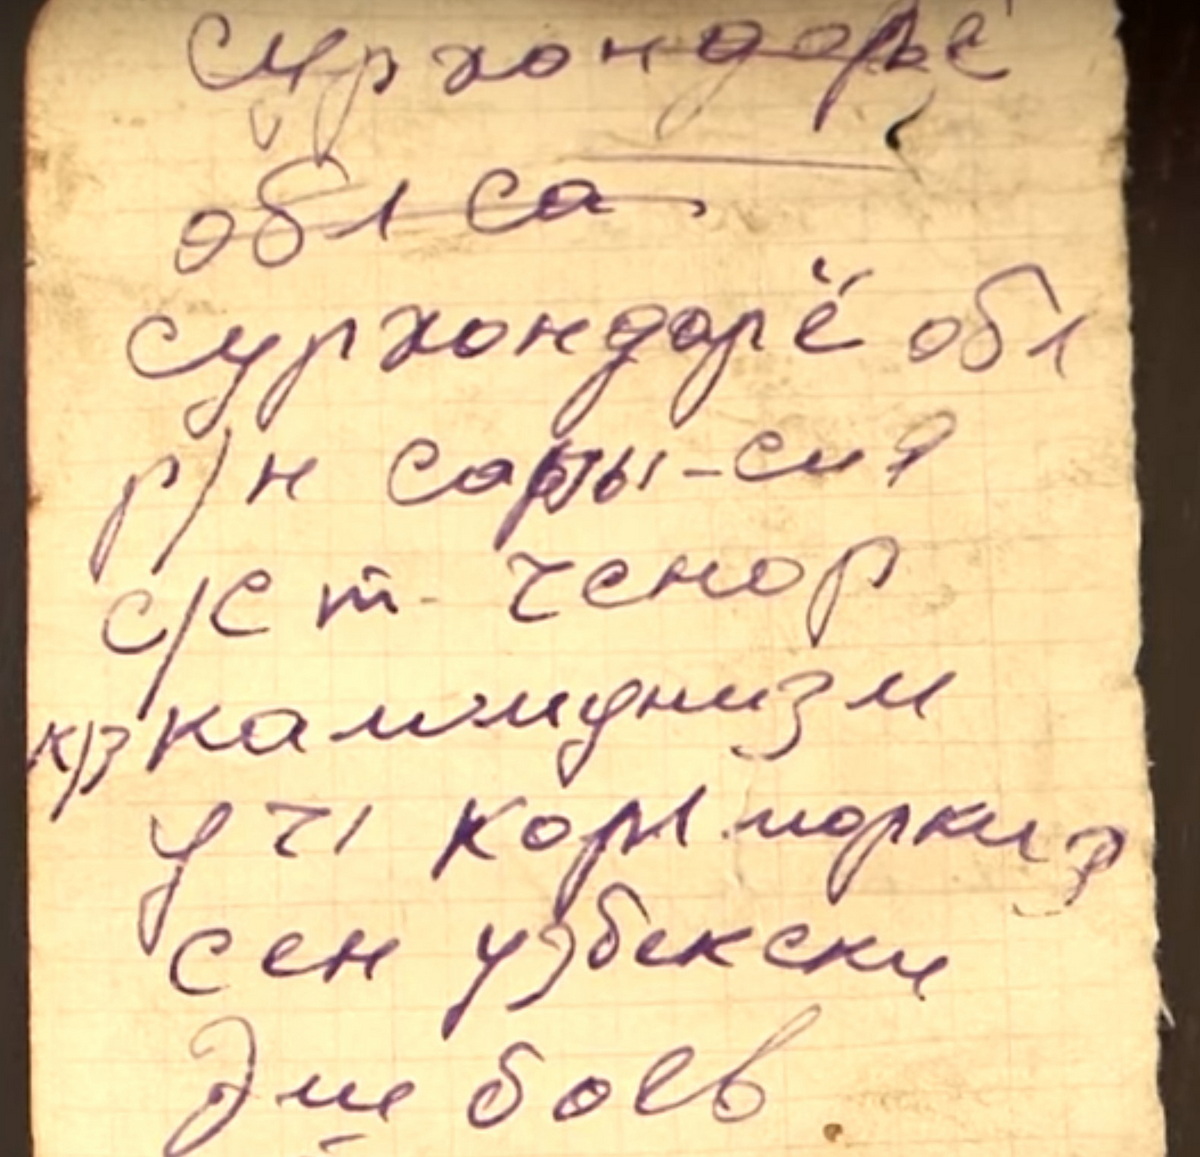 Сурхондорьё
обл са
Сурхондорё обл
р/н сары-сия
с/с т. ченор
к/з каммунизм
уч Корл моркиз
сен узбекски
Эш боев